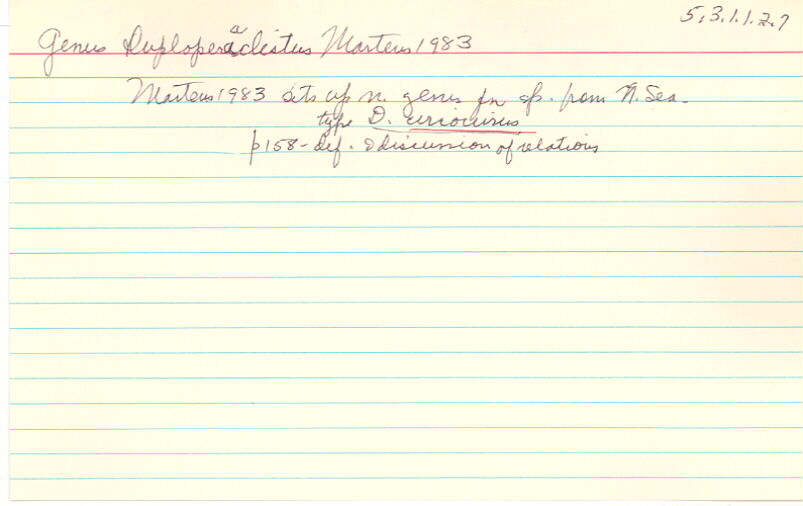 5.3.1.1.2.7
Genus Duploperaclistus Martens 1983
Martens 1983 sets up n. genus for sp. from N. Sea -
type D. circocirrus
p 158 - def. & discussion of relations